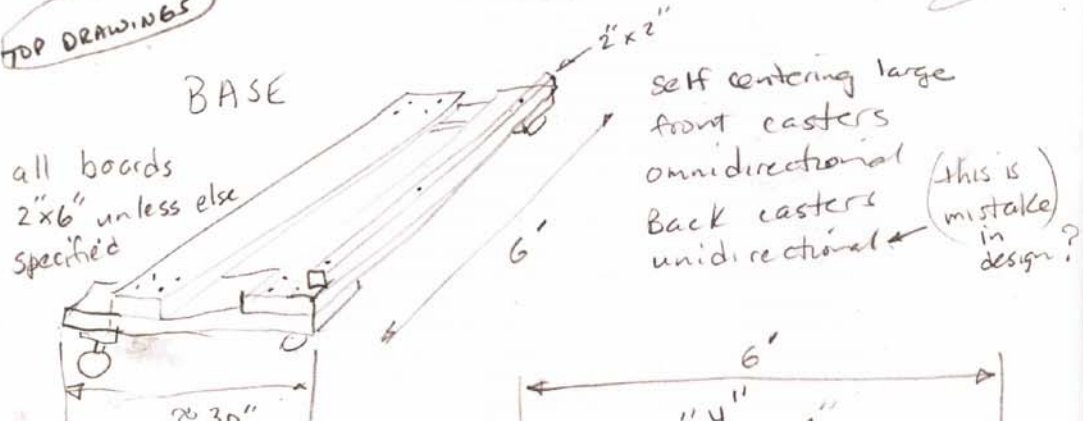 TOP DRAWINGS
BASE
2"x2"
all boards
2"x6" unless else
specified
self centering large
front casters
omnidirectional
Back casters
unidirectional
(this is
mistake
in
design?)
6'
6'
30"
4"